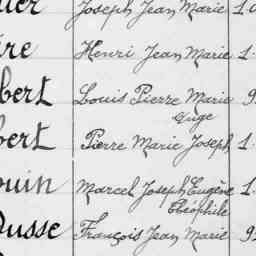 Joseph Jean Marie 1.
re Henri Jean Marie 1.
bert Louis Pierre Marie 9
Ange
bert Pierre Marie Joseph 1.
ouin Marcel Joseph Eugène 1.
Théophile
Dusse François Jean Marie 9